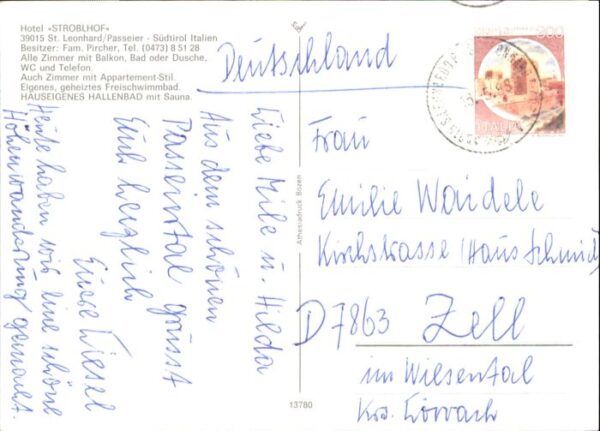 Hotel »STROBLHOF«
39015 St. Leonhard/Passeier - Südtirol Italien
Besitzer: Fam. Pircher, Tel. (0473) 8 51 28
Alle Zimmer mit Balkon, Bad oder Dusche,
WC und Telefon.
Auch Zimmer mit Appartement-Stil.
Eigenes, geheiztes Freischwimmbad.
HAUSEIGENES HALLENBAD mit Sauna.
Liebe Mile u. Hilda
Aus dem schönen
Passeiertal grüsst
Euch herzlich
Eure Liesel
Heute haben wir eine schöne
Höhenwanderung gemacht.
Athesiadruck Bozen
13780
Deutschland
Frau
Emilie Waidele
Kirchstrasse (Haus Schmid)
D 7863 Zell
im Wiesental
Krs. Lörrach
ITALIA